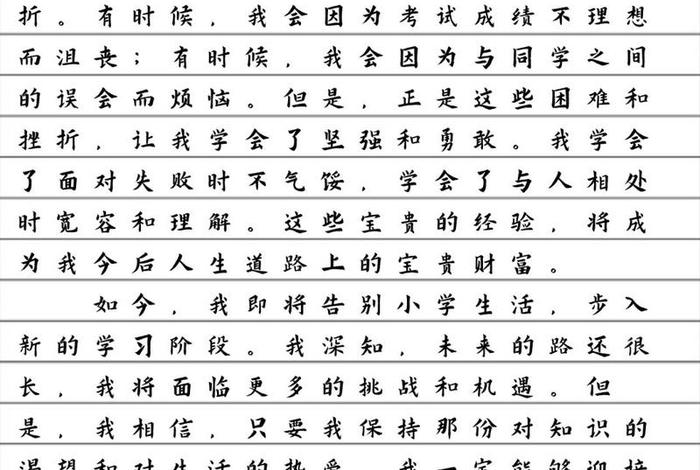 折。有时候，我会因为考试成绩不理想
而沮丧；有时候，我会因为与同学之间
的误会而烦恼。但是，正是这些困难和
挫折，让我学会了坚强和勇敢。我学会
了面对失败时不气馁，学会了与人相处
时宽容和理解。这些宝贵的经验，将成
为我今后人生道路上的宝贵财富。
如今，我即将告别小学生活，步入
新的学习阶段。我深知，未来的路还很
长，我将面临更多的挑战和机遇。但
是，我相信，只要我保持那份对知识的
渴望和对生活的热爱，我一定能够迎接